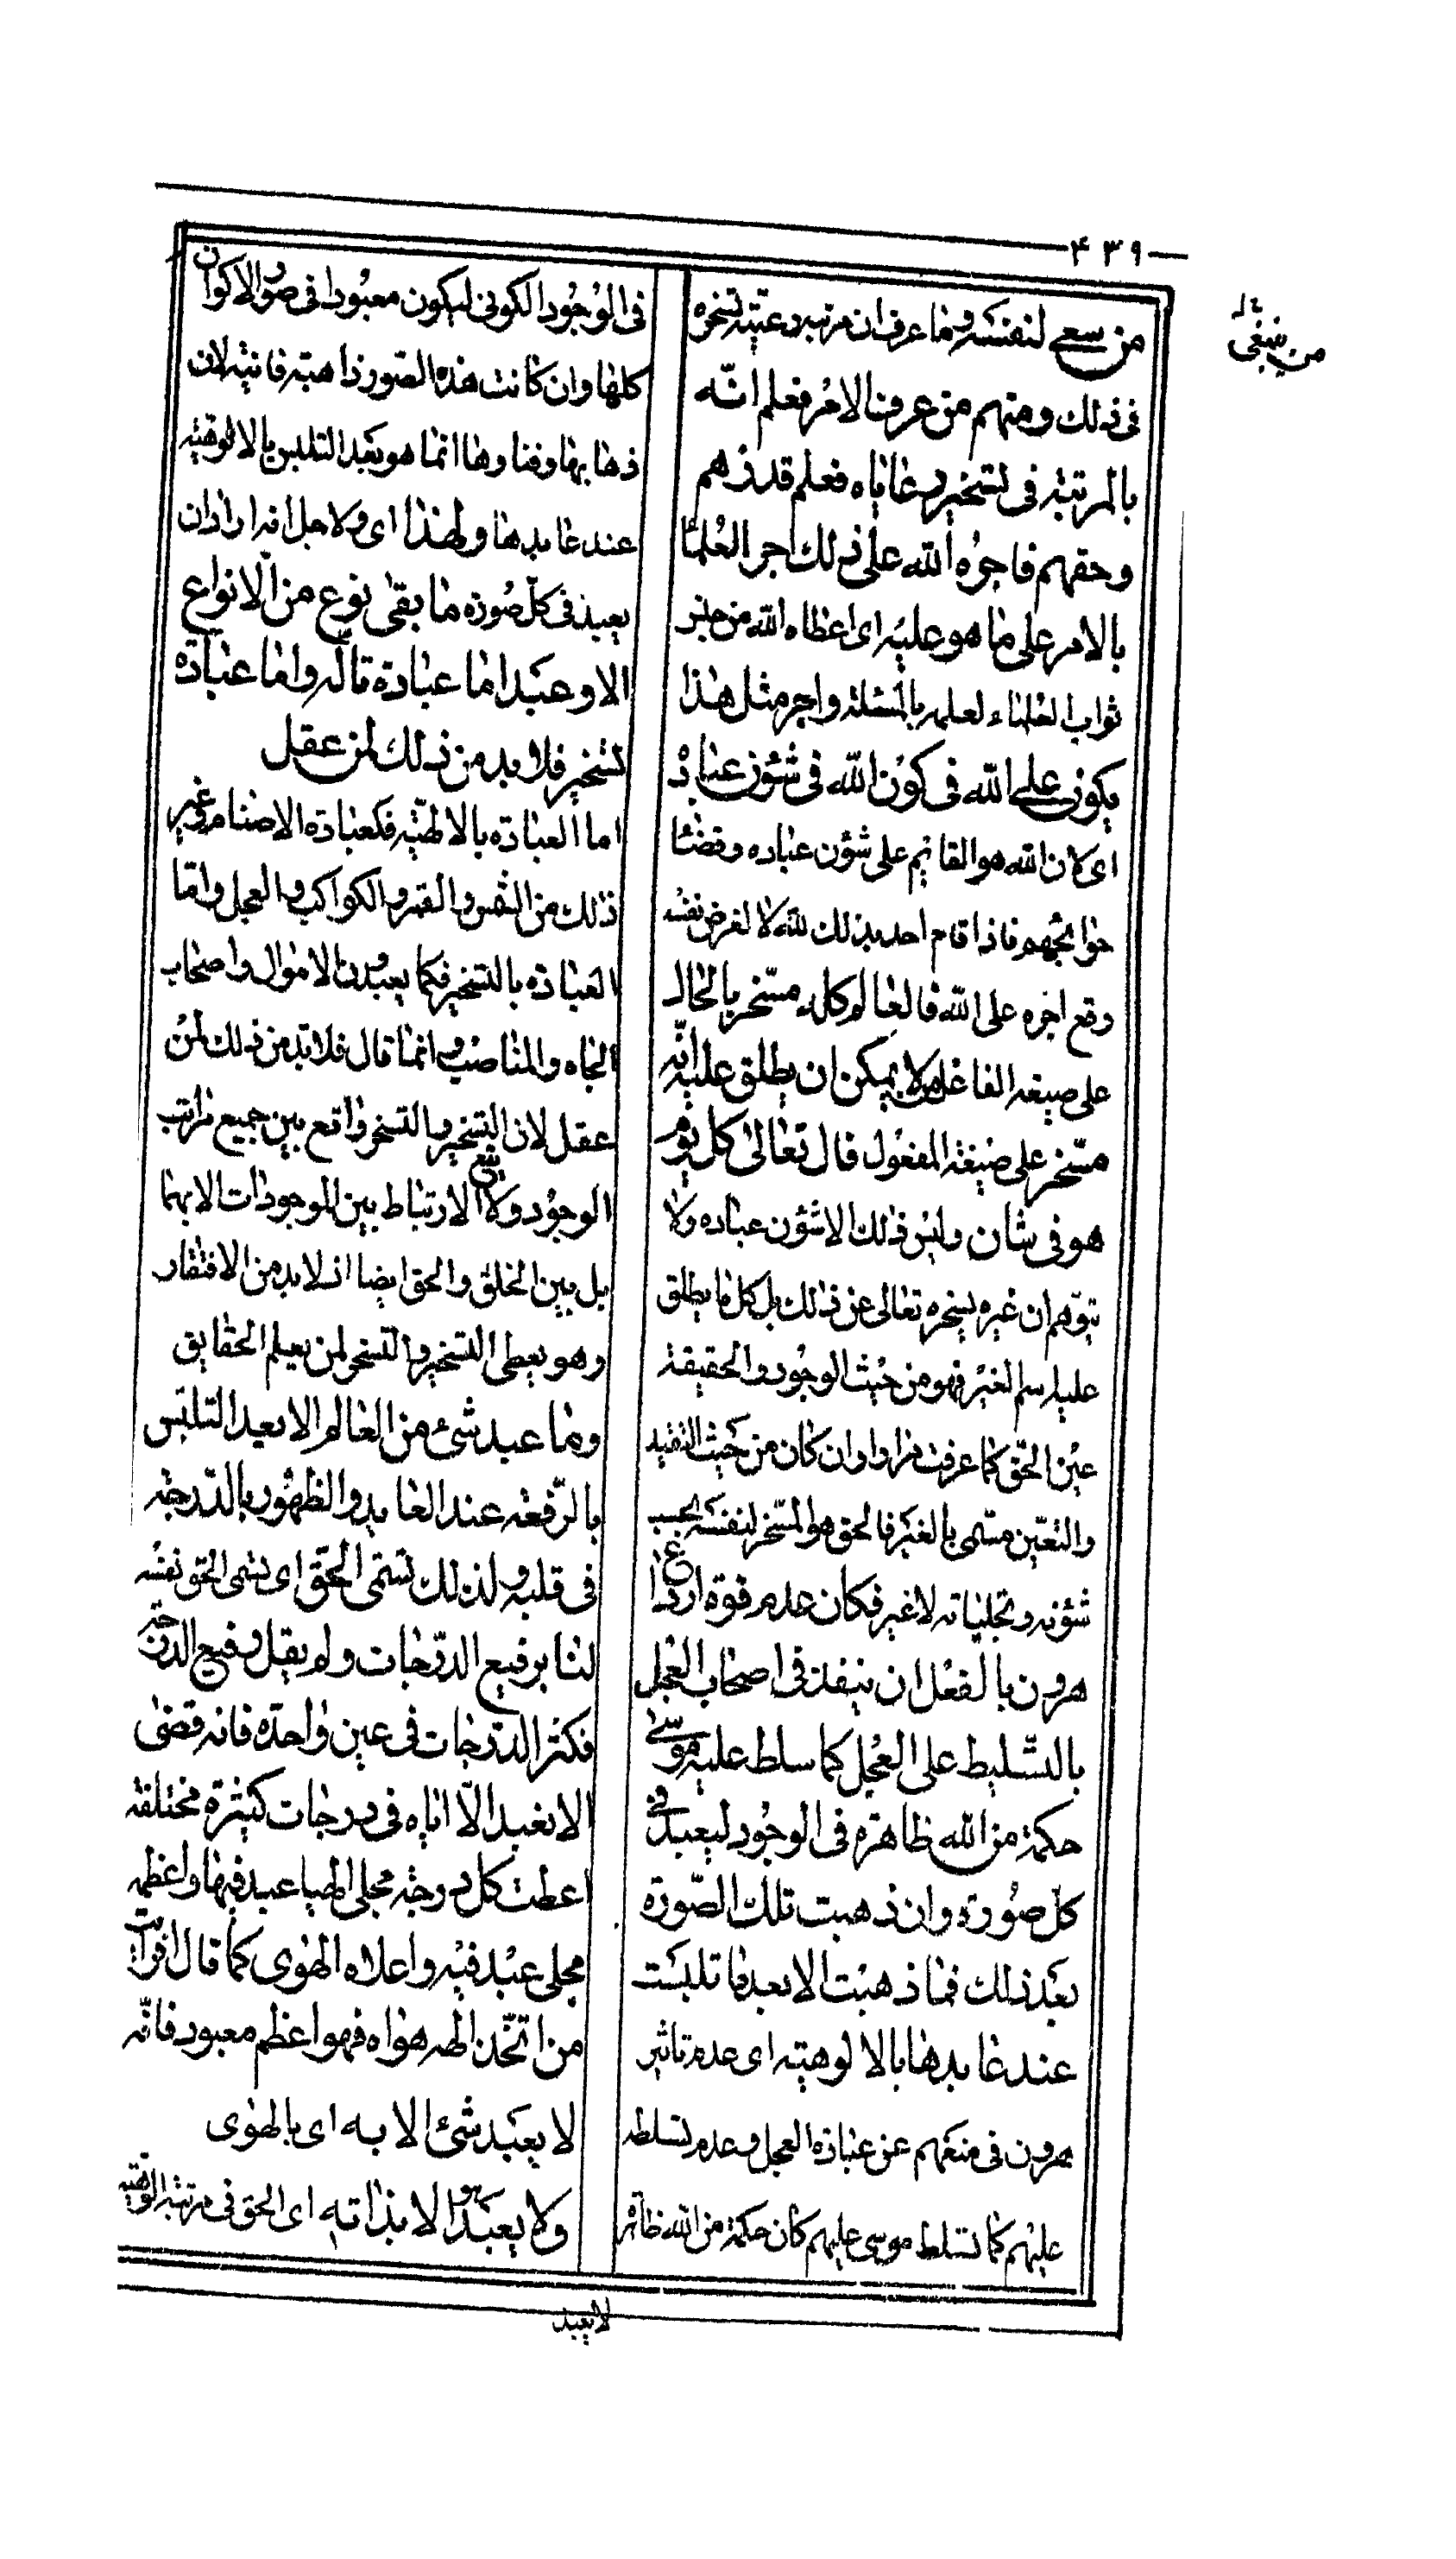 ۴۳۹
من ينبغى
من سعى لنفسه وما عرف ان مرتبة رعيته تسخره
فى ذلك ومنهم من عرف الامر فعلم انّه
بالمرتبة فى تسخير رعاياه فعلم قدرهم
وحقهم فاجره الله على ذلك اجر العلماء
بالامر على ما هو عليه اى اعطاه الله من جنس
ثواب العلماء لعلمه بالمسئلة واجر مثل هذا
يكون على الله فى كون الله فى شئون عباده
اى كان الله هو القائم على شؤن عباده وقضاء
حوائجهم فاذا قام احد بذلك لله لا لغرض نفسه
وقع اجره على الله فالعالم كله مسّخر بالحال
على صيغة الفاعل من لا يمكن ان يطلق عليه انّه
مسّخر على صيغة المفعول قال تعالى كل يوم
هو فى شان وليس ذلك الا شؤن عباده ولا
يتوهم ان غيره يسخره تعالى عن ذلك بل كل ما يطلق
عليه اسم الغير فهو من حيث الوجود والحقيقة
عين الحق كما عرفت مرارا وان كان من حيث التقييد
والتعيّن مسّمى بالغير فالحق هو المسّخر لنفسه بحسب
شؤنه وتجلياته لا غير فكان عدم قوة ارداع
هرون بالفعل ان ينفذ فى اصحاب العجل
بالتسّليط على العجل كما سلط عليه موسى
حكمة من الله ظاهرة فى الوجود ليعبد فى
كل صورة وان ذهبت تلك الصّورة
بعد ذلك فما ذهبت الا بعد ما تلبست
عند عابدها بالالوهية اى عدم تاثير
هرون فى منعهم عن عبادة العجل وعدم تسلطه
عليهم كما تسلط موسى عليهم كان حكمة من الله ظاهرة
فى الوجود الكونى ليكون معبودا فى صور الاكوان
كلها وان كانت هذه الصور ذاهبة فانية لان
ذهابها وفناءها انما هو بعد التلبس بالالوهية
عند عابدها ولهذا اى ولاجل انه اراد ان
يعبد فى كل صورة ما بقى نوع من الانواع
الا وعبد اما عبادة تالّه واما عبادة
تسخير فلا بد من ذلك لمن عقل
اما العبادة بالالهية فكعبادة الاصنام وغير
ذلك من الشمس والقمر والكواكب والعجل وامّا
العبادة بالتسخير فكما يعبدون الاموال واصحاب
الجاه والمناصب وانما قال فلا بد من ذلك لمن
عقل لان التسخير والتسخر واقع بين جميع مراتب
الوجود ولا يقع الارتباط بين الموجودات الا بهما
بل بين الخلق والحق ايضا اذ لا بد من الافتقار
وهو يعطى التسخير والتسخر لمن يعلم الحقايق
وما عبد شئ من العالم الا بعد التلبّس
بالرّفعة عند العابد والظهور بالدّرجة
فى قلبه ولذلك تسّمى الحق اى تسّمى الحق نفسه
لنا برفيع الدّرجات ولم يقل رفيع الدرجة
فكثر الدّرجات فى عين واحدة فانه قضى
الا نعبد الّا اياه فى درجات كثيرة مختلفة
اعطت كل درجة مجلى الهيا عبد فيها واعظم
مجلى عبد فيه واعلاه الهوى كما قال افرايت
من اتّخذ الهه هواه فهو اعظم معبود فانّه
لا يعبد شئ الا به اى بالهوى
ولا يعبد هو الا بذاته اى الحق فى مرتبة الوهيته
لا يعبد